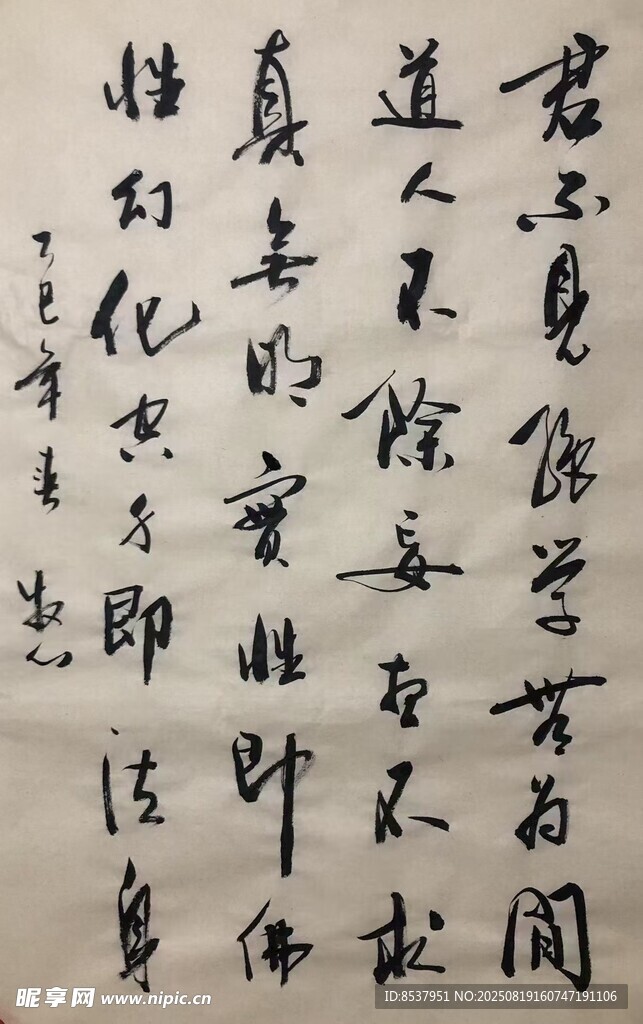 君不見絕学無为閒
道人不除妄想不求
真無明實性即佛
性幻化空身即法身
乙巳年春 牧心
昵享网 www.nipic.cn
ID:8537951 NO:20250819160747191106